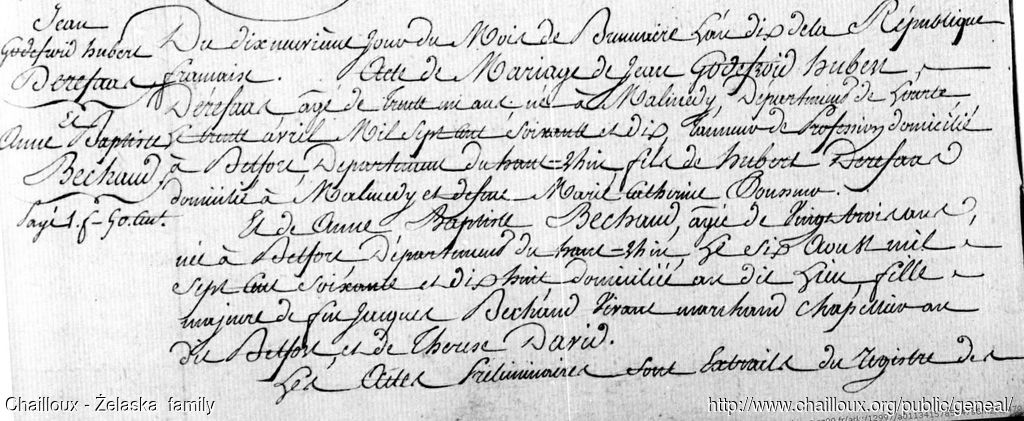 Jean
Godefroid hubert
Derefaas
Et
Anne Baptiste
Bechaud
Payé 1. f. 50. cent.
Du dixneuvième jour du Mois de Brumaire L'an dix de la République
francaise. Acte de Mariage de Jean Godefroid hubert
Dérefaas, âgé de trente un ans. né à Malmedy, Departement de Lourte
Le trente avril Mil Sept Cent Soixante et dix, Tanneur de Profession domicilié
à Belfort, Departement du haut-Rhin, fils de hubert Derefaas
domicilié à Malmedy et defunte Marie Catherine
Et de Anne Baptiste Bechaud, agée de Vingt trois ans,
née à Belfort Département du haut-Rhin, Le Six Aoust mil
Sept Cent Soixante et dix huit domiciliée au dit Lieu, fille
majeure de feu Jacques Bechaud Vivant marchand Chapellier au
dit Belfort, et de Therese David.
Les Actes Préliminaires Sont Extraits du Registre des
Chailloux - Żelaska family
http://www.chailloux.org/public/geneal/